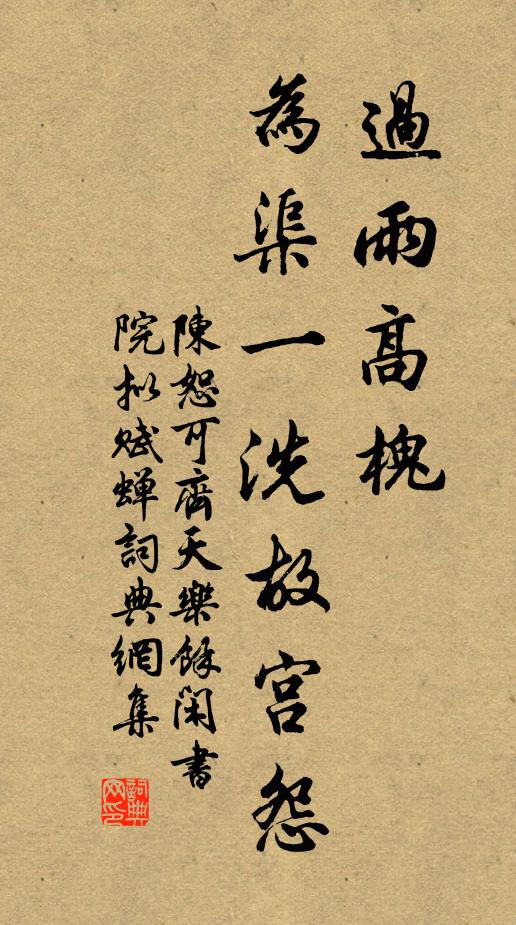 過雨高槐
為渠一洗故宮怨
陳恕可齊天樂餘閑書
院擬賦蟬詞典網集
詞典
网印